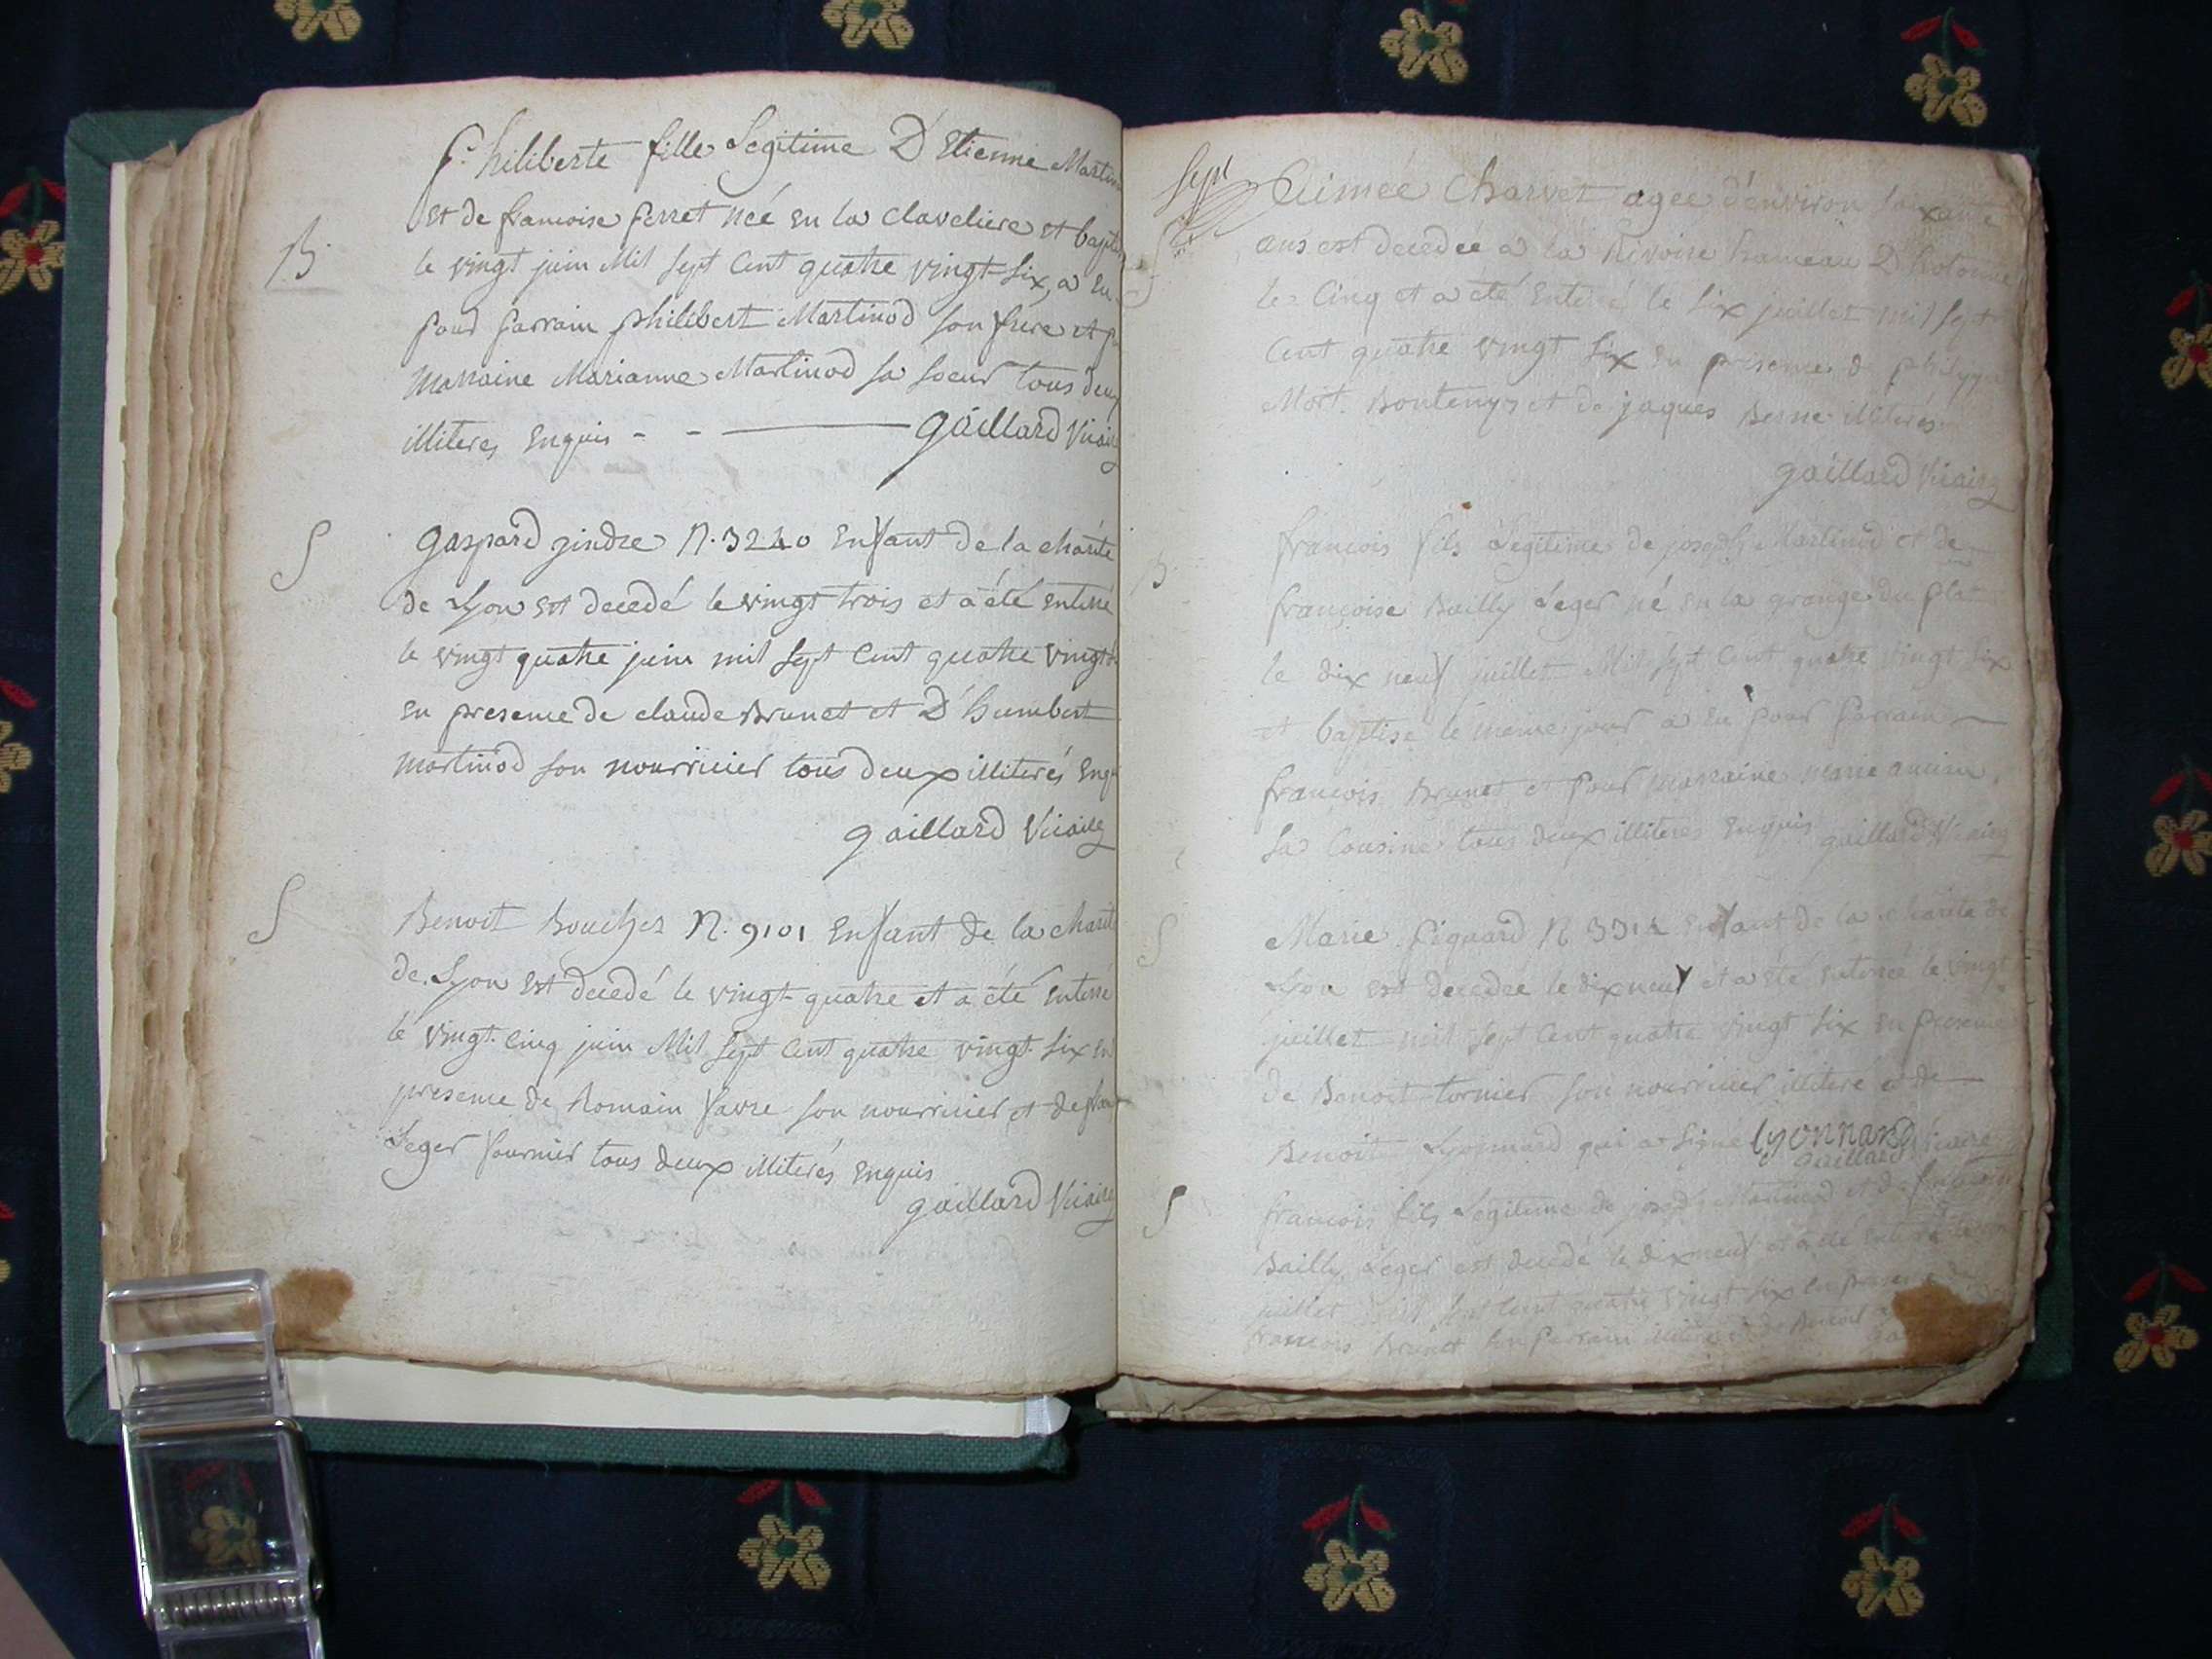 B.
philiberte fille Legitime D'Etienne Martin
et de francoise perret neé en la claveliere et bapti
le vingt juin Mil Sept Cent quatre vingt Six, a eu
pour parrain philibert Martinod son frere et p
marraine Marianne Martinod sa soeur tous deux
illiteres enquis - - gaillard Vicaire
S
gaspard gindre N. 3240 enfant de la charité
de Lyon est decedé le vingt trois et a été enterré
le vingt quatre juin mil Sept Cent quatre vingt
en presence de claude Brunet et D'humbert
martinod son nourricier tous deux illiterés enq
gaillard Vicaire
S
Benoit Boucher N. 9101 enfant de la charit
de Lyon est decedé le vingt quatre et a été enterré
le vingt Cinq juin Mil Sept Cent quatre vingt Six en
presence de Romain favre son nourricier et de
Leger fournier tous deux illiterés enquis
gaillard Vicaire
Sept
S
Aimeé Charvet ageé d'environ soixante
ans est decedeé a la Rivoire hameau D'hotonne
le Cinq et a été enterré le Six juillet mil Sept
Cent quatre vingt Six en presence de philippe
Mort. Bontemps et de jaques Berne illiterés
gaillard Vicaire
B.
francois fils Legitime de joseph Martinod et de
françoise Bailly Leger né en la grange du plat
le dix neuf juillet Mil Sept Cent quatre vingt Six
et baptisé le meme jour a eu pour parrain
francois Brunet et pour marraine marie
Sa Cousine tous deux illiteres enquis gaillard Vicaire
S
Marie piquard N 331 enfant de la charité de
Lyon est decedeé le dix neuf et a été enterreé le vingt
juillet mil Sept Cent quatre vingt Six en presence
de Benoit tornier son nourricier illiteré et de
Benoit Lyonnard qui a signé lyonnard
gaillard Vicaire
S
francois fils Legitime de joseph Martinod et de francoise
Bailly Leger est decedé le dix neuf et a été enterré le
juillet mil Sept Cent quatre vingt Six en presence de
francois Brunet son parrain illiteré et de Benoit